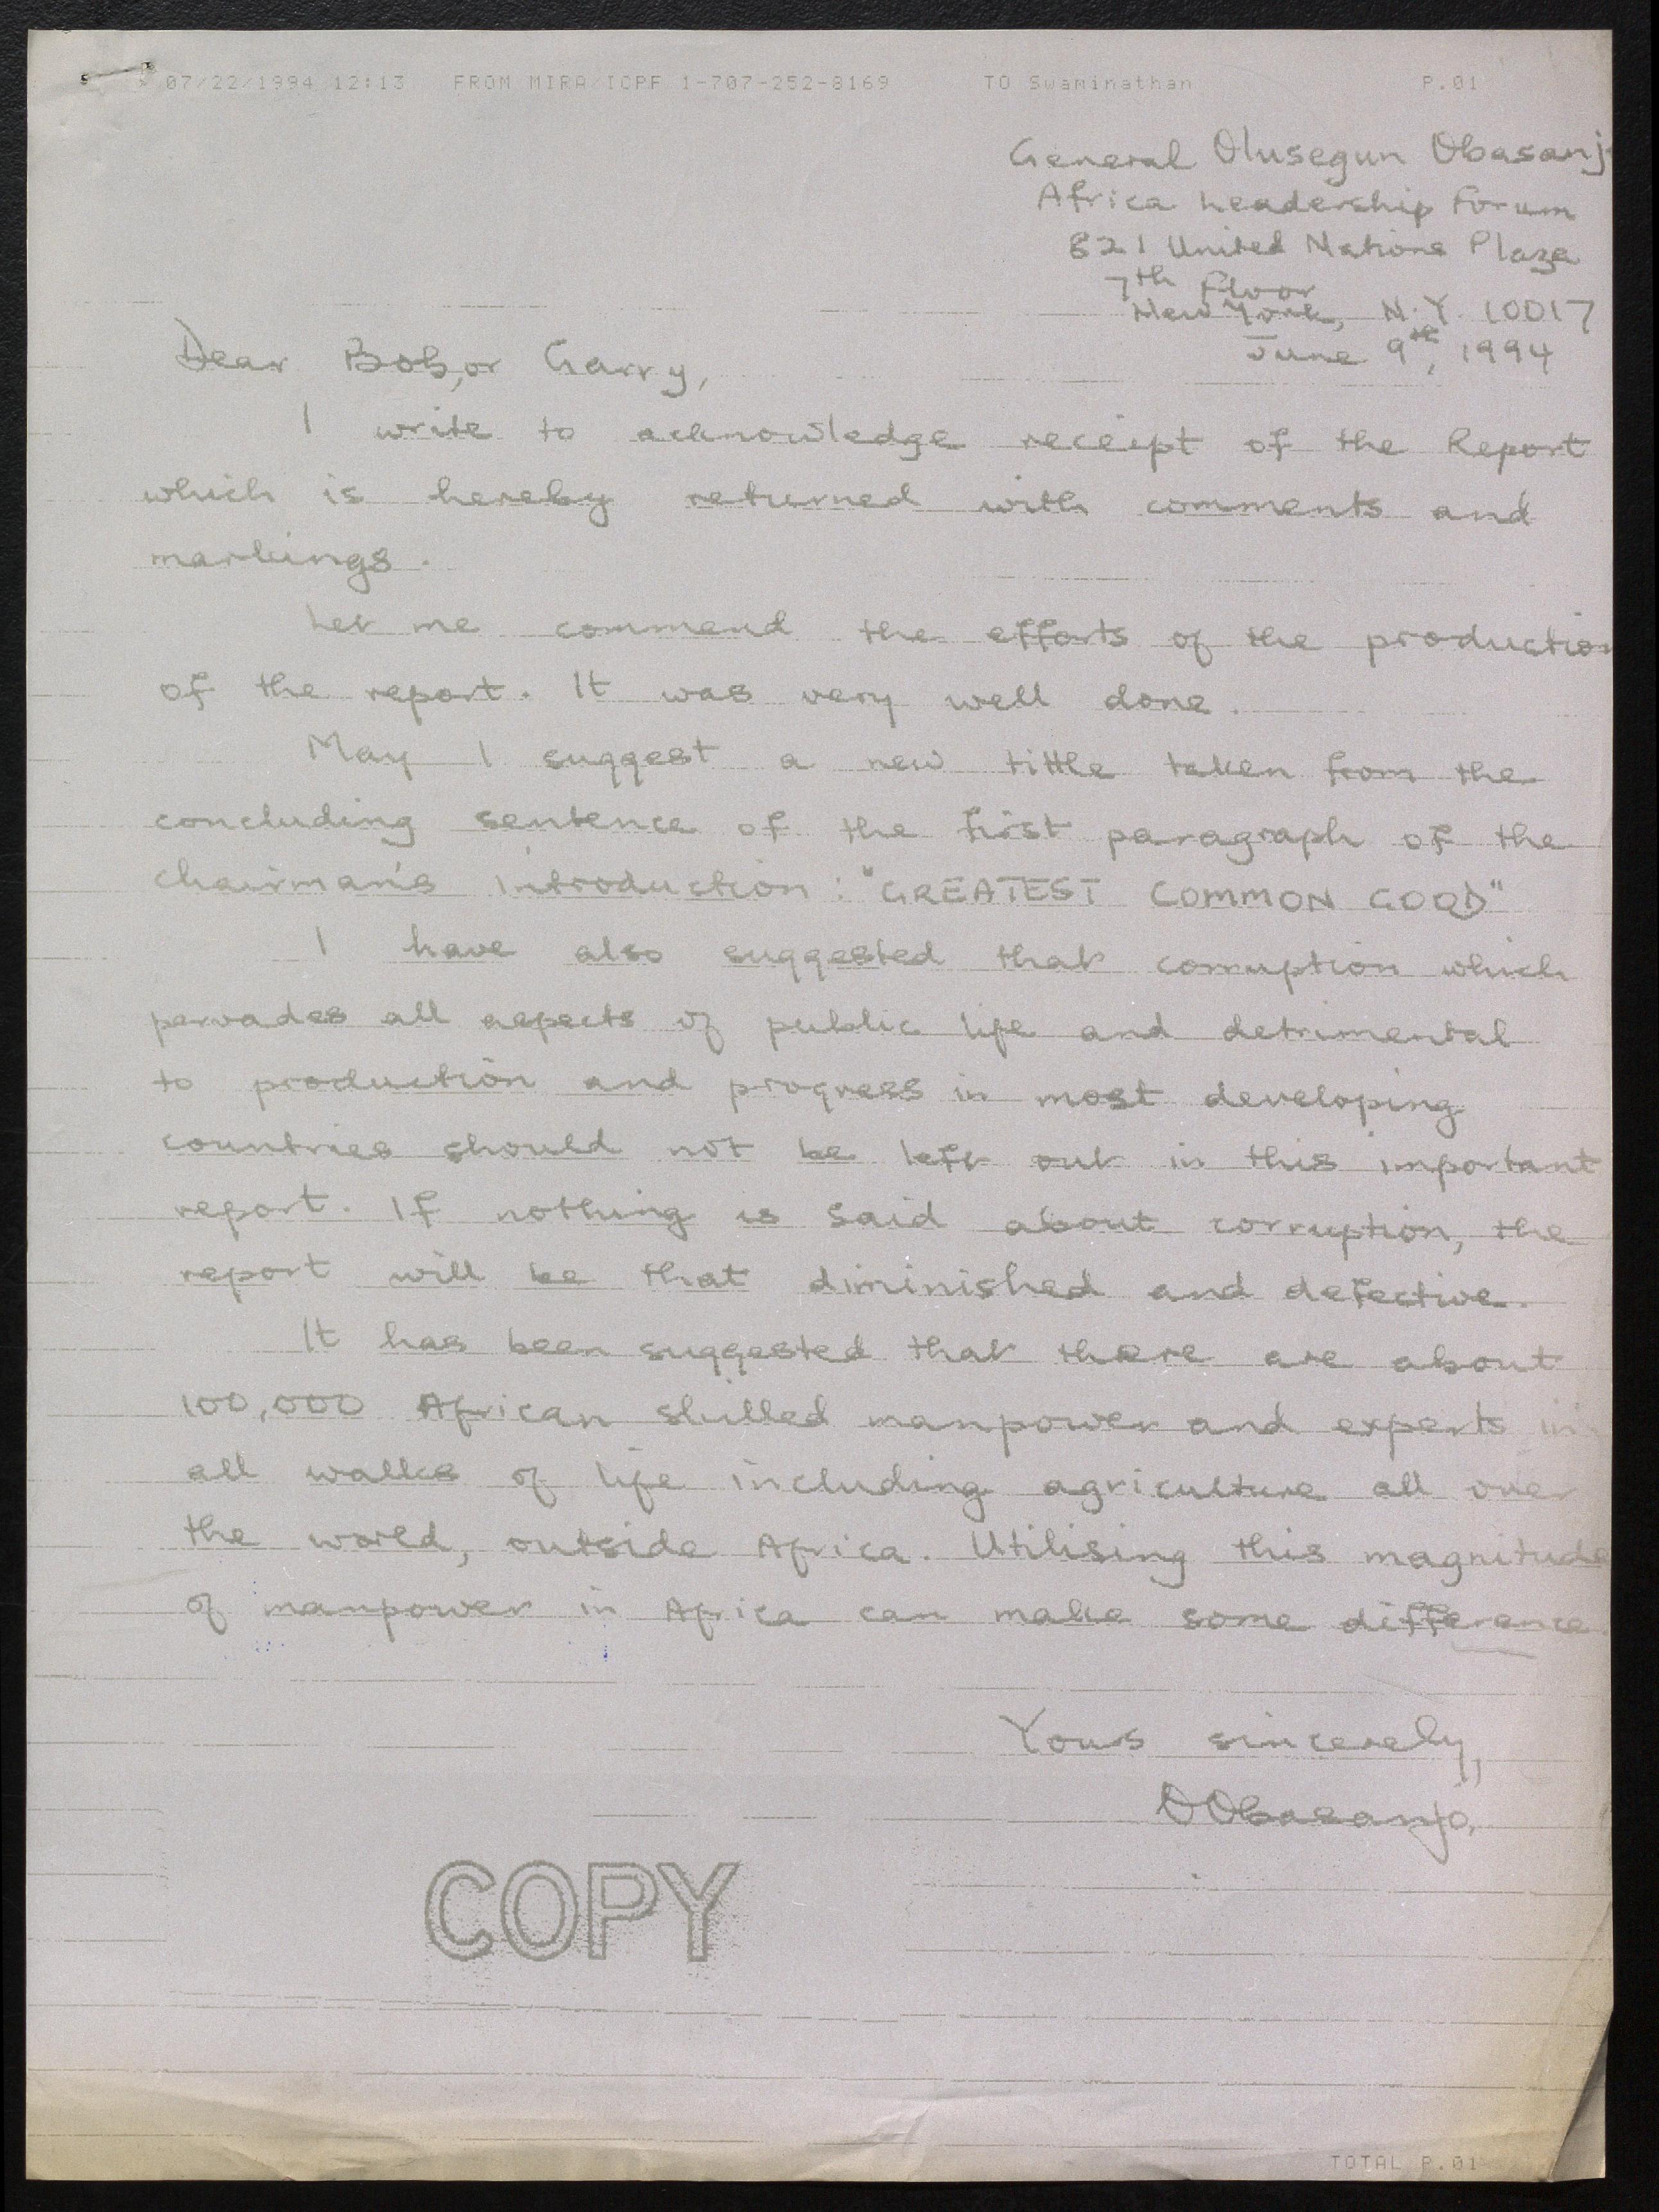 07/22/1994 12:13 FROM MIRA/ICPF 1-707-252-8169 TO Swaminathan P.01
General Olusegun Obasanj
Africa Leadership Forum
821 United Nations Plaza
7th Floor
New York, N.Y. 10017
June 9th, 1994
Dear Bob, or Garry,
I write to acknowledge receipt of the Report
which is hereby returned with comments and
markings.
Let me commend the efforts of the production
of the report. It was very well done.
May I suggest a new tittle taken from the
concluding sentence of the first paragraph of the
chairman's introduction: "GREATEST COMMON GOOD"
I have also suggested that corruption which
pervades all aspects of public life and detrimental
to production and progress in most developing
countries should not be left out in this important
report. If nothing is said about corruption, the
report will be that diminished and defective.
It has been suggested that there are about
100,000 African skilled manpower and experts in
all walks of life including agriculture all over
the world, outside Africa. Utilising this magnitude
of manpower in Africa can make some difference.
Yours sincerely,
OObasanjo,
COPY
TOTAL P.01